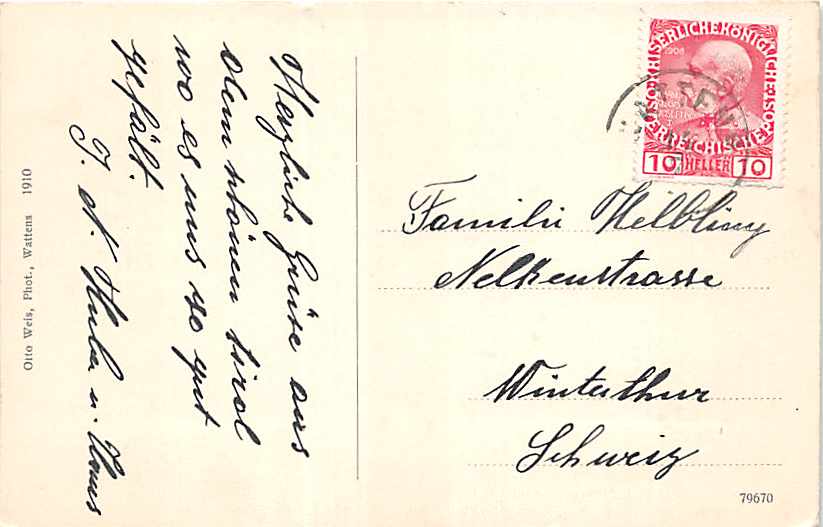 Herzliche Grüße aus
dem schönen tirol
wo es uns so gut
gefält.
J. N. Huber u. Hans
Otto Weis, Phot., Wattens 1910
KAISERLICHE KÖNIGLICHE
ÖSTERREICHISCHE POST
1908
10 HELLER 10
WATTENS
Familie Helbling
Nelkenstrasse
Winterthur
Schweiz
79670